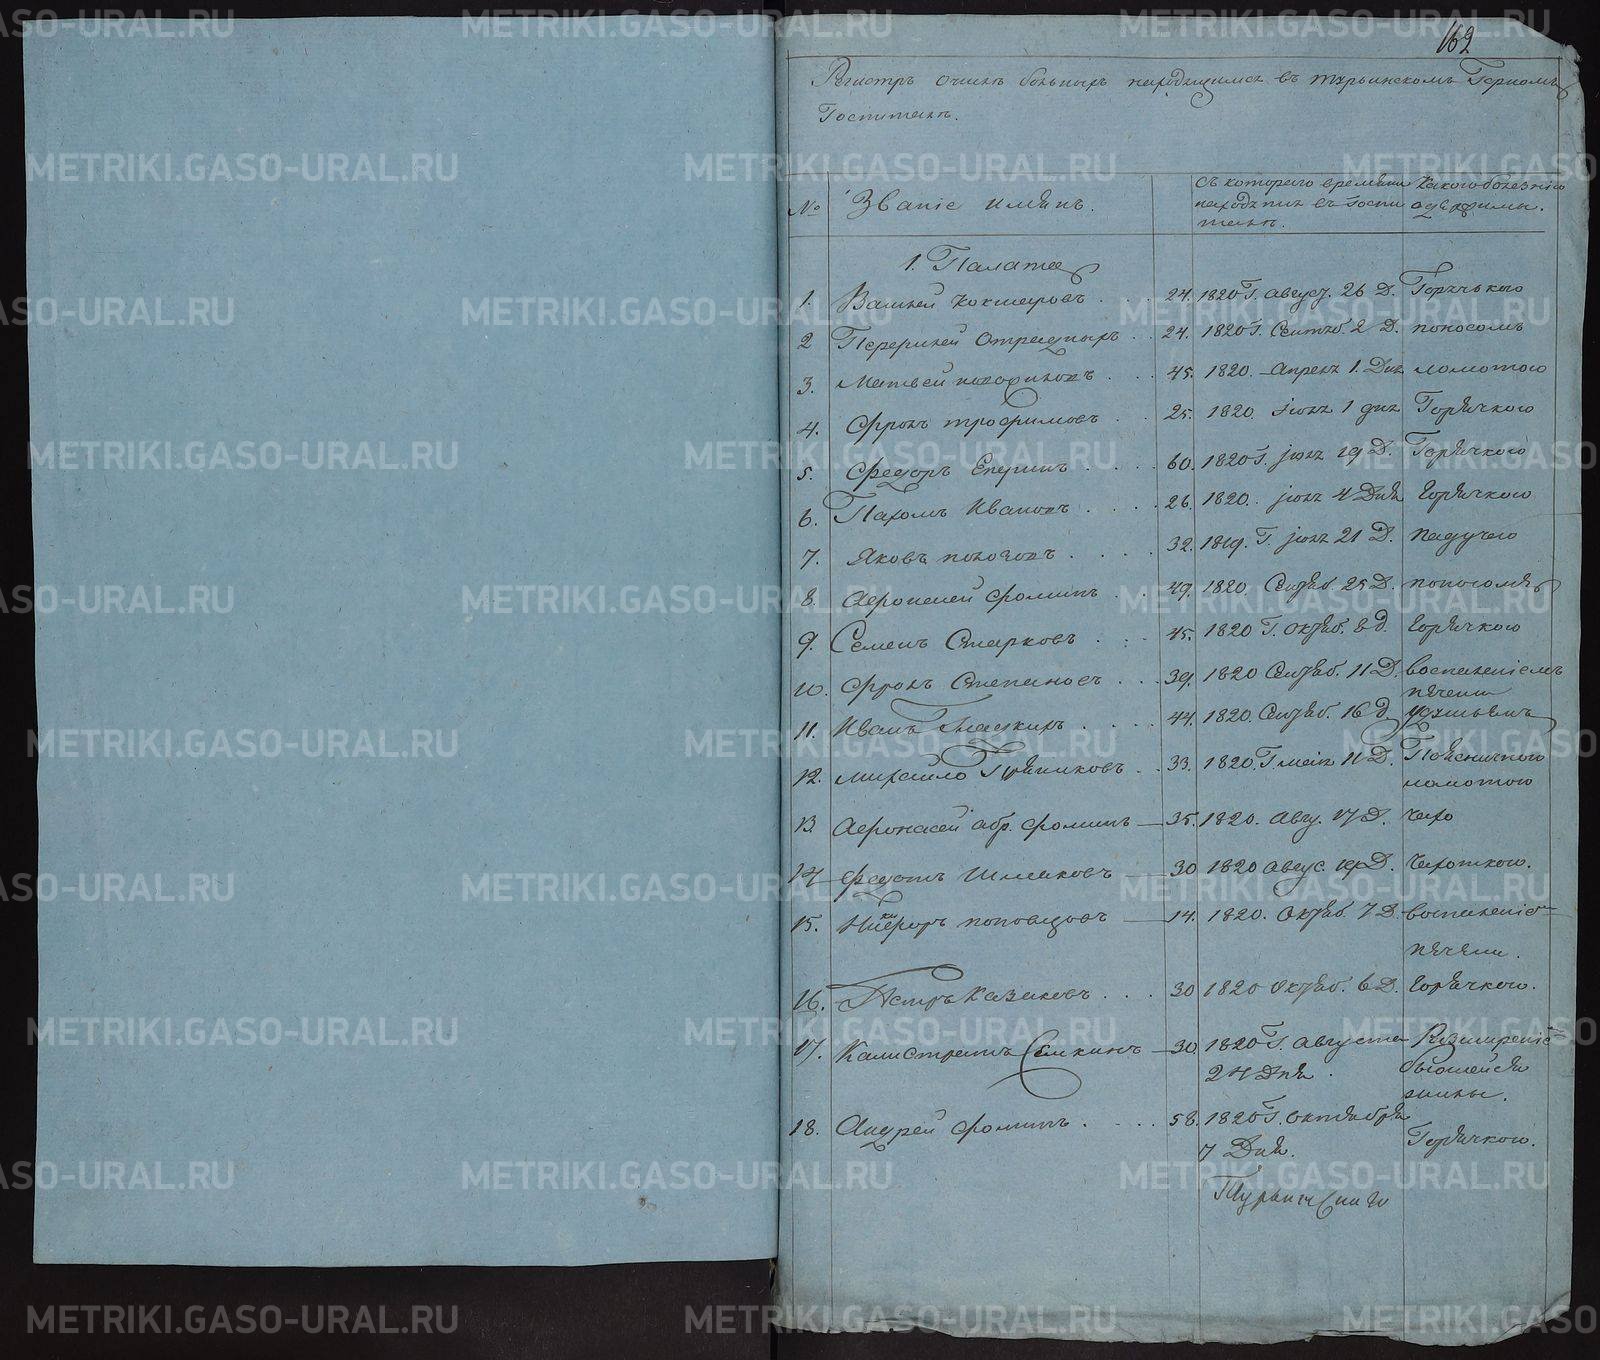 162
Регистръ очинь больныръ находящимся въ турьинскомъ Горномъ
Госпитали.
№ Званіе имянъ. съ которого времяни находятца въ Госпитали. Какого болезнію одержимы.
1. Палата
1. Василей Кокшаровъ . . . 24. 1820 Г. Август. 26 Д. Горячькою
2 Терентей . . 24. 1820 Г. Сентяб 2 Д. поносомъ
3. Матвей . . . 45. 1820. Апреля 1. Дня ломотою
4. Фролъ трофимовъ . . 25. 1820. Іюля 1 дня Горячкою
5. Федоръ . . . . 60. 1820 Г. июля 19 Д. Горячкою
6. Пахомъ Ивановъ . . . . 26. 1820. июля 4 Дня Горячкою
7. Яковъ . . . . 32. 1819. Г. июля 21 Д. падучею
8. Афонасей фоминъ . . 49. 1820. Сентяб. 25 Д. поносомъ
9. Семенъ Старковъ . : 45. 1820 Г. Октяб. 8 д. Горячкою
10. Фролъ Степановъ . . . 39. 1820 Сентяб. 11 Д. воспаленіемъ
печени
11. Иванъ Гладкиръ . . . . 44. 1820. Сентяб. 16 д. удушьемъ
12. михайло Пряниковъ . . 33. 1820 Г маія 11 Д. Поясничною
ломотою
13. Афонасей абр. фоминъ — 35. 1820. Авгу. 17 Д. Чахо
14 Федотъ Шмаковъ — 30 1820 Авгус. 19 Д. Чахоткою.
15. Никифоръ поповцовъ — 14. 1820. Октяб. 7 Д. воспаленіе
печени.
16. Петръ Казаковъ . . . 30 1820 Октяб. 6 Д. Горячкою.
17. Калистратъ Семкинъ — 30. 1820 Г. Августа Розширеніе
24 Дня . бьющейся
жилы.
18. Андрей фоминъ . . . . 58. 1820 Г. Октября
7 Дня. Горячкою.
Турьинскаго
METRIKI.GASO-URAL.RU